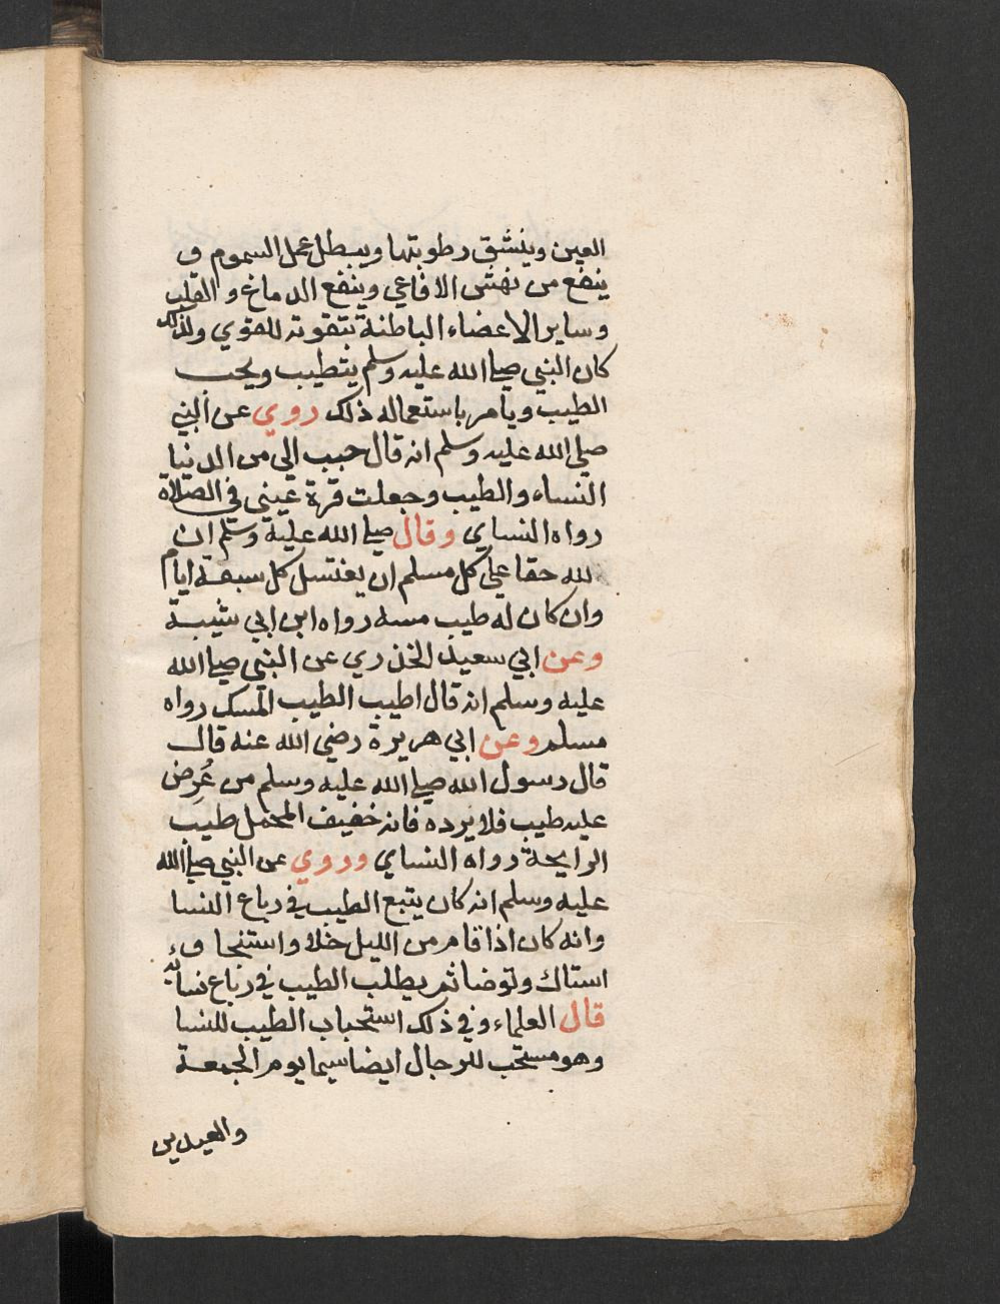 العين وينشق رطوبتها ويبطل عمل السموم و
ينفع من نهش الافاعي وينفع الدماغ والقلب
وساير الاعضاء الباطنة بتقوته للقوي ولذلك
كان النبي صلي الله عليه وسلم يتطيب ويحب
الطيب ويامر باستعماله ذلك روي عن النبي
صلي الله عليه وسلم انه قال حبب الي من الدنيا
النساء والطيب وجعلت قرة عيني في الصلاة
رواه النساي وقال صلي الله علية وسلم ان
لله حقا علي كل مسلم ان يغتسل كل سبعة ايام
وان كان له طيب مسه رواه ابن ابي شيبة
وعن ابي سعيد الخذري عن النبي صلي الله
عليه وسلم انه قال اطيب الطيب المسك رواه
مسلم وعن ابي هريرة رضي الله عنه قال
قال رسول الله صلي الله عليه وسلم من عُرِض
عليه طيب فلا يرده فانه خفيف المحمل طيب
الرايحة رواه النساي وروي عن النبي صلي الله
عليه وسلم انه كان يتبع الطيب في رباع النسا
وانه كان اذا قام من الليل خلا واستنجا وء
استاك وتوضا ثم يطلب الطيب في رباع نسايه
قال العلماء وفي ذلك استحباب الطيب للنسا
وهو مستحب للرجال ايضا سيما يوم الجمعة
والعيدين